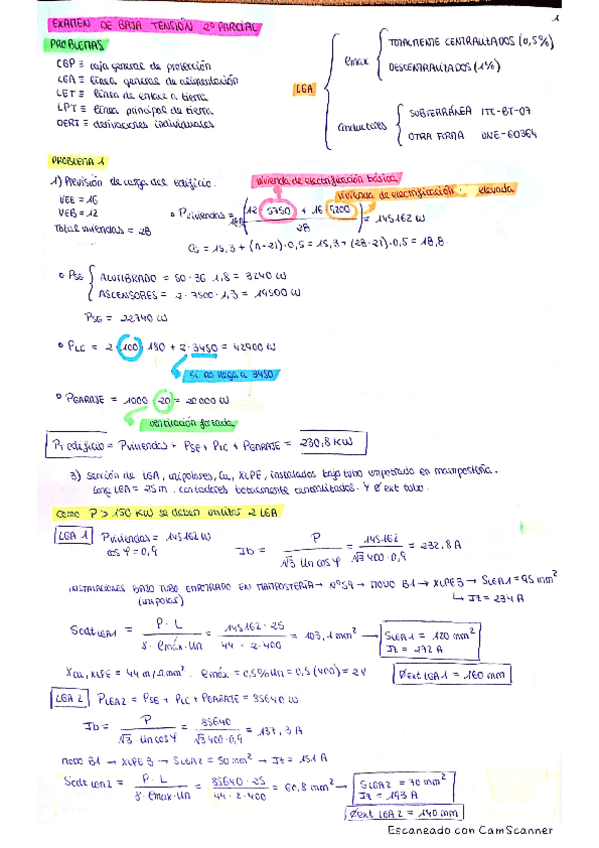 1
EXAMEN DE BAJA TENSIÓN 2º PARCIAL
PROBLEMAS
CGP ≡ caja general de protección
LGA ≡ línea general de alimentación
LET ≡ línea de enlace a tierra
LPT ≡ línea principal de tierra
DERI ≡ derivaciones individuales
LGA
emax
TOTALMENTE CENTRALIZADOS (0,5%)
DESCENTRALIZADOS (1%)
conductores
SUBTERRÁNEA ITC-BT-07
OTRA FORMA UNE-60364
PROBLEMA 1
1) Previsión de carga del edificio.
VEE = 16
VEB = 12
Total viviendas = 28
vivienda de electrificación básica
vivienda de electrificación elevada
Pviviendas = 18,8 (12 · 5750 + 16 · 9200 / 28) = 145162 W
Cs = 15,3 + (n-21)·0,5 = 15,3 + (28-21)·0,5 = 18,8
PSG
ALUMBRADO = 50 · 36 · 1,8 = 3240 W
ASCENSORES = 2 · 7500 · 1,3 = 19500 W
PSG = 22740 W
PLC = 2 · 100 · 180 + 2 · 3450 = 42900 W
si no llega a 3450
PGARAJE = 1000 · 20 = 20000 W
ventilación forzada
PT edificio = Pviviendas + PSG + PLC + PGARAJE = 230,8 KW
3) Sección de LGA, unipolares, Cu, XLPE, instalados bajo tubo empotrado en mampostería.
Long LGA = 25m. contadores totalmente centralizados. Y Ø ext tubo.
Como P > 150 KW se deben utilizar 2 LGA
LGA 1 Pviviendas = 145162 W
cos φ = 0,9
Ib = P / √3 Un cos φ = 145162 / √3 400·0,9 = 232,8 A
INSTALACIONES BAJO TUBO EMPOTRADO EN MAMPOSTERÍA → Nº59 → MODO B1 → XLPE3 → SLGA1 = 95 mm²
(unipolar)
↳ Iz = 234 A
Scdt LGA1 = P · L / γ · emáx · Un = 145162 · 25 / 44 · 2 · 400 = 103,1 mm² → SLGA1 = 120 mm²
Iz = 272 A
γCu, XLPE = 44 m/Ω mm². emáx = 0,5% Un = 0,5 (400) = 2V
Øext LGA1 = 160 mm
LGA 2 PLGA2 = PSG + PLC + PGARAJE = 85640 W
Ib = P / √3 Un cos φ = 85640 / √3 400·0,9 = 137,3 A
modo B1 → XLPE3 → SLGA2 = 50 mm² → Iz = 151 A
Scdt LGA2 = P · L / γ · emax · Un = 85640 · 25 / 44 · 2 · 400 = 60,8 mm² → SLGA2 = 70 mm²
Iz = 193 A
Øext LGA2 = 140 mm
Escaneado con CamScanner